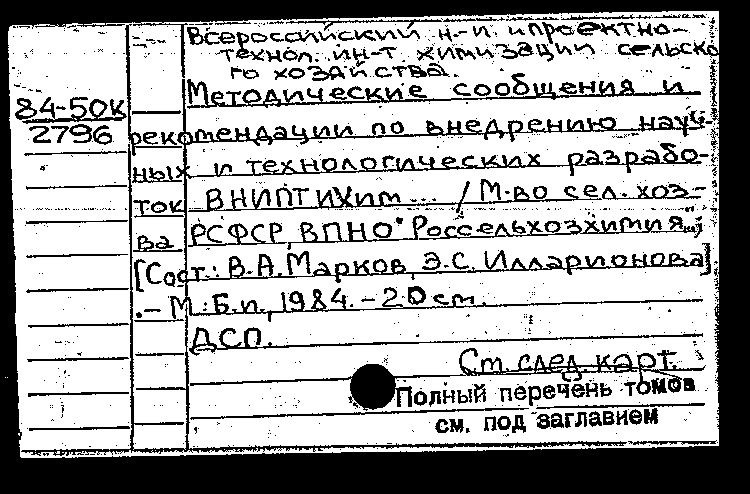 Всероссийский н-и. и проектно-
технол. ин-т химизации сельско
го хозяйства.
84-50К
2796
Методические сообщения и
рекомендации по внедрению науч-
ных и технологических разрабо-
ток ВНИПТИХим... / М-во сел. хоз-
ва РСФСР, ВПНО "Россельхозхимия"...;
[Сост.: В.А. Марков, Э.С. Илларионова]
.- М.: Б.и., 1984. - 20 см.
ДСП.
См. след. карт.
Полный перечень томов
см. под заглавием